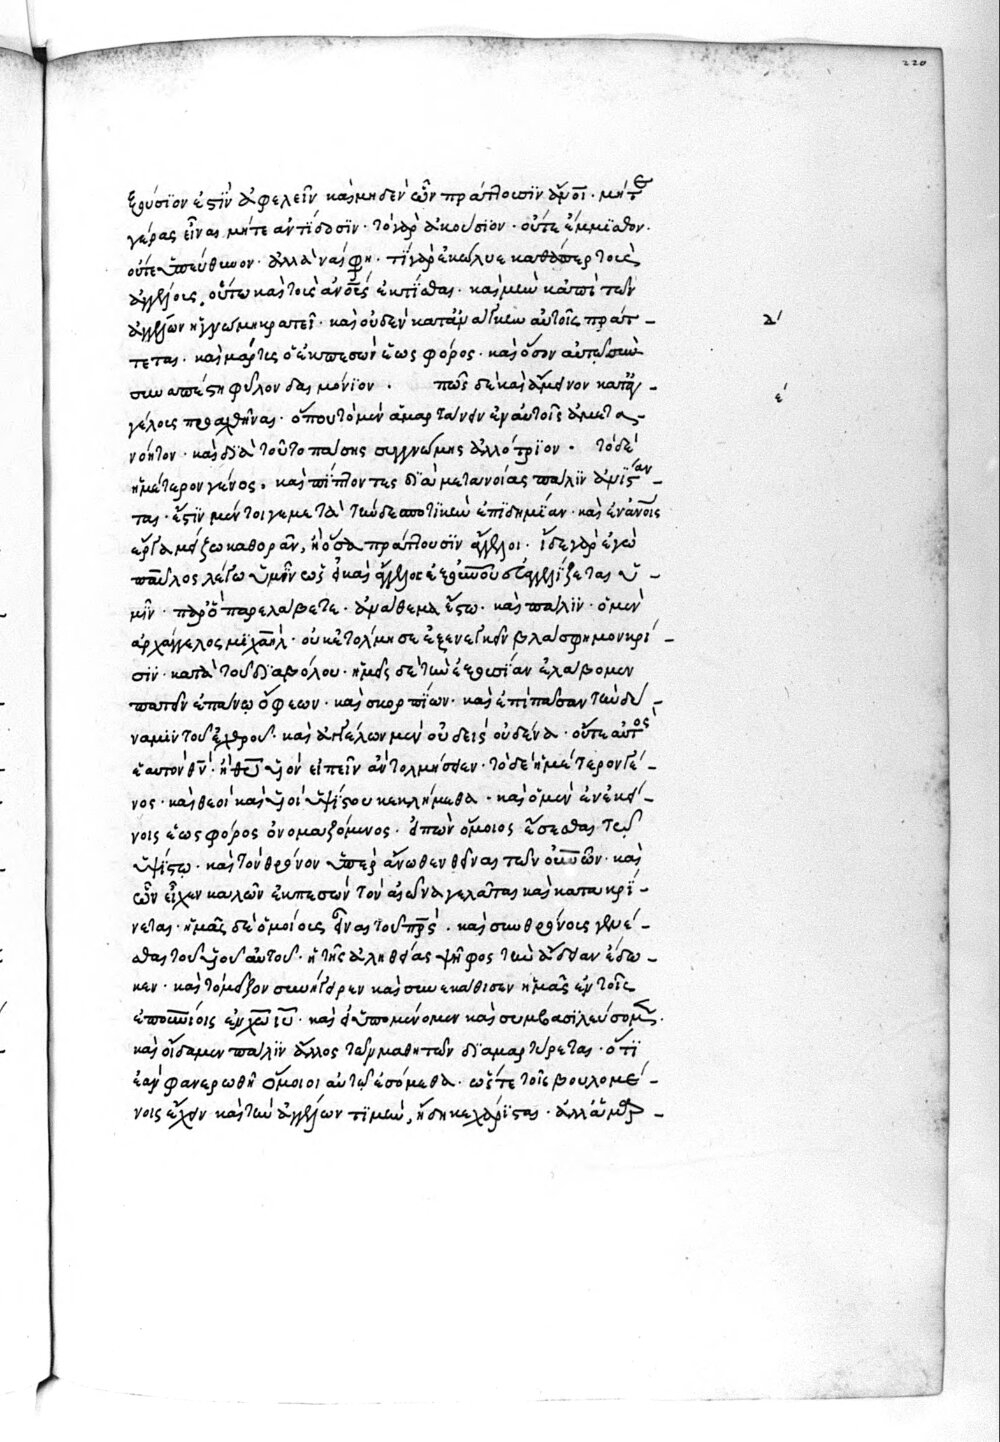 220
ξούσϊον ἐστϊν ἀφελεῖν καὶ μηδὲν ὧν πράττουσϊν ἄνοι · μήτε
γέρας εἶναι μήτε ἀντίδοσϊν · τὸ γὰρ ἀκούσϊον · οὔτε ἔμμισθον ·
οὔτε ὑπεύθυνον · ἀλλὰ ναί φη · τί γὰρ ἐκώλυε καθάπερ τοῖς
ἀγγέλοις, οὕτω καὶ τοῖς ἀνοις ἐκτίσθαι · καὶ μὴν κἀπὶ τῶν
ἀγγέλων ἡ γνώμη κρατεῖ · καὶ οὐδὲν κατ' ἀνάγκην αὐτοῖς πράτ –
δ´
τεται · καὶ μάρτυς ὁ ἐκπεσὼν ἑωσφόρος · καὶ ὅσον αὐτῷ
συναπέστη φῦλον δαιμόνϊον · πῶς δὲ καὶ ἄμεινον κατ' ἀγ –
ε´
γέλοις πραχθῆναι · ὅπου τὸ μὲν ἁμαρτάνειν ἐν αὐτοῖς ἀμετα –
νόητον · καὶ δϊὰ τοῦτο πάσης συγγνώμης ἀλλότρϊον · τὸ δὲ
ἡμέτερον γένος · καὶ πίπτοντες δϊὰ μετανοίας πάλϊν ἀνίσταν –
ται · ἔστϊν μέντοι γε μετὰ τὴν δεσποτϊκὴν ἐπϊδημίαν · καὶ ἐν ἀνοις
ἔργα μείζω καθορᾶν, ἢ ὅσα πράττουσϊν ἄγγελοι · ἴδε γὰρ ἐγὼ
παῦλος λέγω ὑμῖν ὡς εἰ καὶ ἄγγελος ἐξ οὐνου εὐαγγελίζεται ὑ –
μῖν · παρ' ὃ παρελάβετε · ἀνάθεμα ἔστω · καὶ πάλϊν · ὁ μὲν
ἀρχάγγελος μϊχαὴλ · οὐκ ἐτόλμησε ἐξενεγκεῖν βλασφημον κρί –
σϊν · κατὰ τοῦ δϊαβόλου · ἡμεῖς δὲ τὴν ἐξουσίαν ἐλάβομεν
πατεῖν ἐπάνω ὄφεων · καὶ σκορπίων · καὶ ἐπὶ πᾶσαν τὴν δύ –
ναμϊν τοῦ ἐχθροῦ · καὶ ἀγγέλων μὲν οὐδεὶς οὐδένα · οὔτε αὐτὸς
ἑαυτὸν θν · ἢ θυ υἱὸν εἰπεῖν ἀντολμήσειεν · τὸ δὲ ἡμέτερον γέ –
νος · καὶ θεοὶ καὶ υἱοὶ ὑψίστου κεκλήμεθα · καὶ ὁ μὲν ἐν ἐκεί –
νοις ἑωσφόρος ὀνομαζόμενος · εἰπὼν ὅμοιος ἔσεσθαι τῷ
ὑψίστῳ · καὶ τὸν θρόνον ὑπὲρ ἄνωθεν θεῖναι τῶν οὐνων · καὶ
ὧν εἶχεν καλῶν ἐκπεσὼν τὸν αἰῶνα γελᾶται καὶ κατακρί –
νεται · ἡμᾶς δὲ ὁμοίους εἶναι τοῦ πρς · καὶ συνθρόνους γενέ –
σθαι τοῦ υἱοῦ αὐτοῦ · ἡ τῆς ἀληθείας ψῆφος τὴν ἄδειαν ἔδω –
κεν · καὶ τὸ μεῖζον συνήγειρεν καὶ συνεκάθισεν ἡμᾶς ἐν τοῖς
ἐπουνίοις ἐν χω ιυ · καὶ εἰ ὑπομένομεν καὶ συμβασϊλεύσομεν ·
καὶ οἴδαμεν πάλϊν ἄλλος τῶν μαθητῶν δϊαμαρτύρεται · ὅτϊ
ἐὰν φανερωθῇ ὅμοιοι αὐτῷ ἐσόμεθα · ὥστε τοῖς βουλομέ –
νοις ἔχειν καὶ τὴν ἀγγέλων τϊμὴν, ἤδη κεχάρισται · ἀλλ'